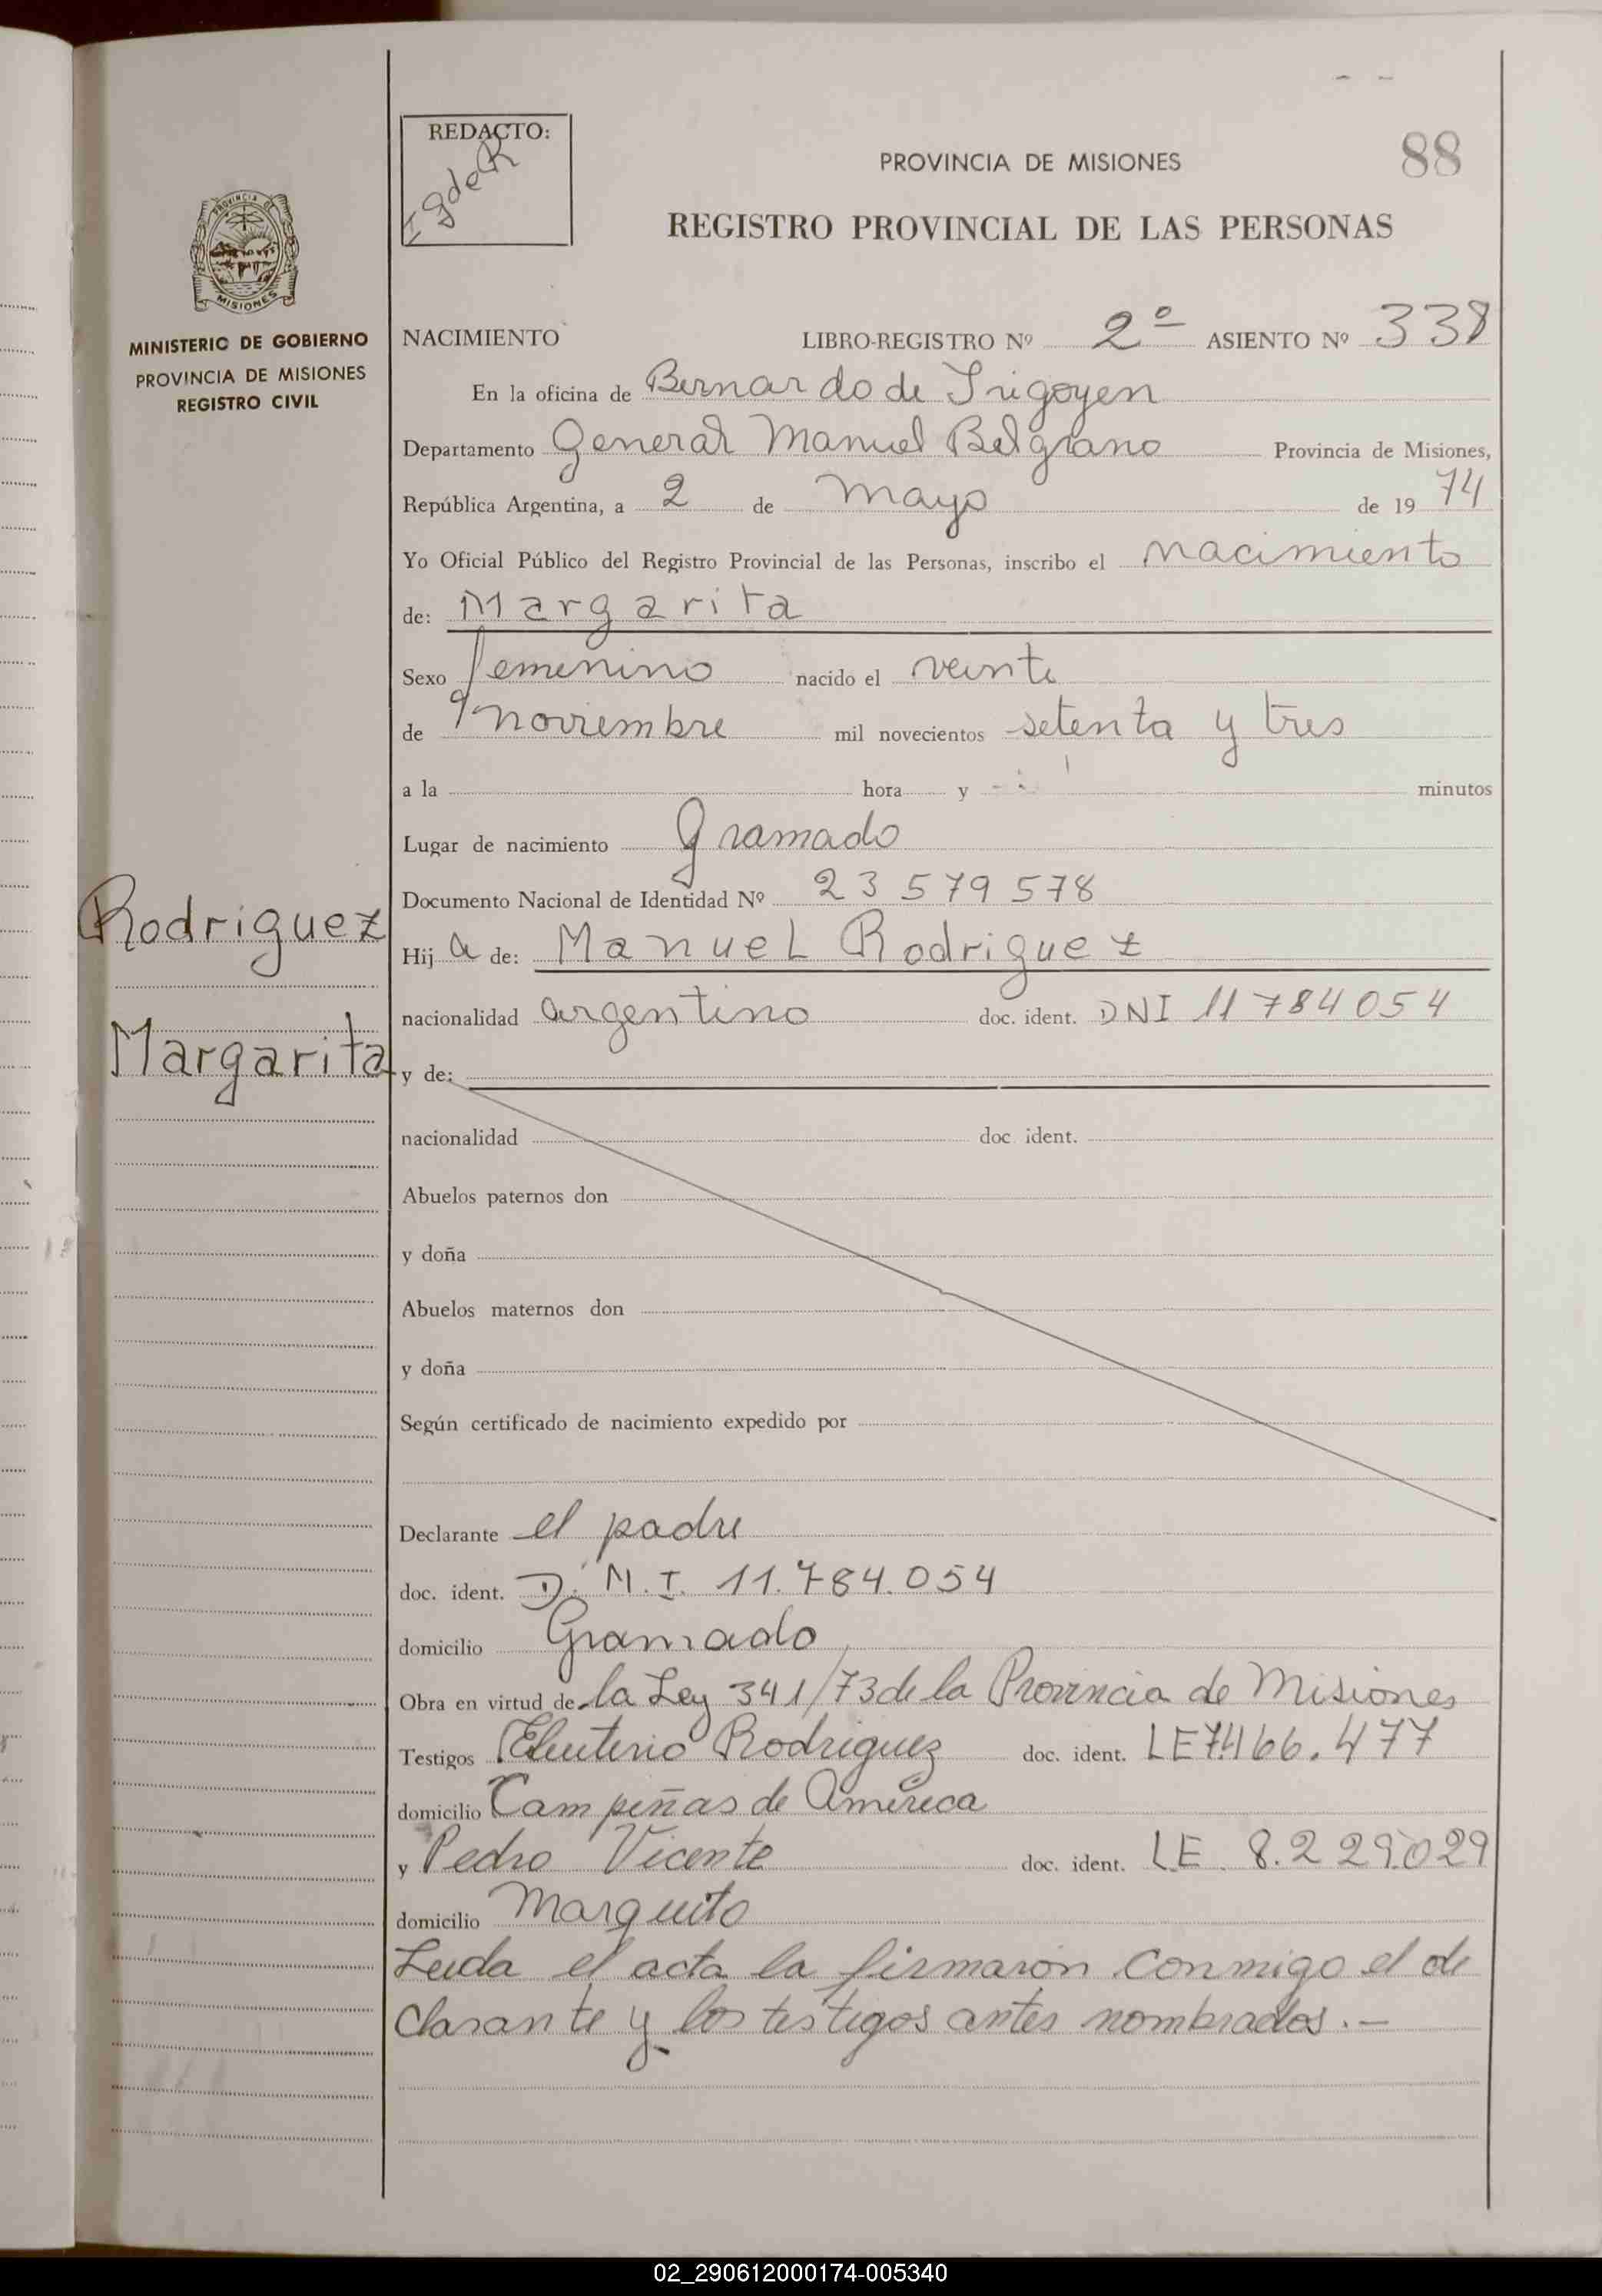 REDACTO:
IgdeR
PROVINCIA DE MISIONES
88
REGISTRO PROVINCIAL DE LAS PERSONAS
PROVINCIA DE
MISIONES
MINISTERIO DE GOBIERNO
PROVINCIA DE MISIONES
REGISTRO CIVIL
NACIMIENTO LIBRO-REGISTRO Nº 2º ASIENTO Nº 338
En la oficina de Bernardo de Irigoyen
Departamento General Manuel Belgrano Provincia de Misiones,
República Argentina, a 2 de mayo de 19 74
Yo Oficial Público del Registro Provincial de las Personas, inscribo el nacimiento
de: Margarita
Sexo femenino nacido el veinte
de noviembre mil novecientos setenta y tres
a la hora y minutos
Lugar de nacimiento Gramado
Documento Nacional de Identidad Nº 23 579 578
Rodriguez
Hij a de: Manuel Rodriguez
nacionalidad argentino doc. ident. DNI 11 784 054
Margarita
y de:
nacionalidad doc ident.
Abuelos paternos don
y doña
Abuelos maternos don
y doña
Según certificado de nacimiento expedido por
Declarante el padre
doc. ident. D.N.I. 11.784.054
domicilio Gramado
Obra en virtud de la Ley 341/73 de la Provincia de Misiones
Testigos Eleuterio Rodriguez doc. ident. LE 7.466.477
domicilio Campiñas de América
y Pedro Vicente doc. ident. L.E. 8.229.029
domicilio Marquito
Leida el acta la firmaron conmigo el de
clarante y los testigos antes nombrados.-
02_290612000174-005340